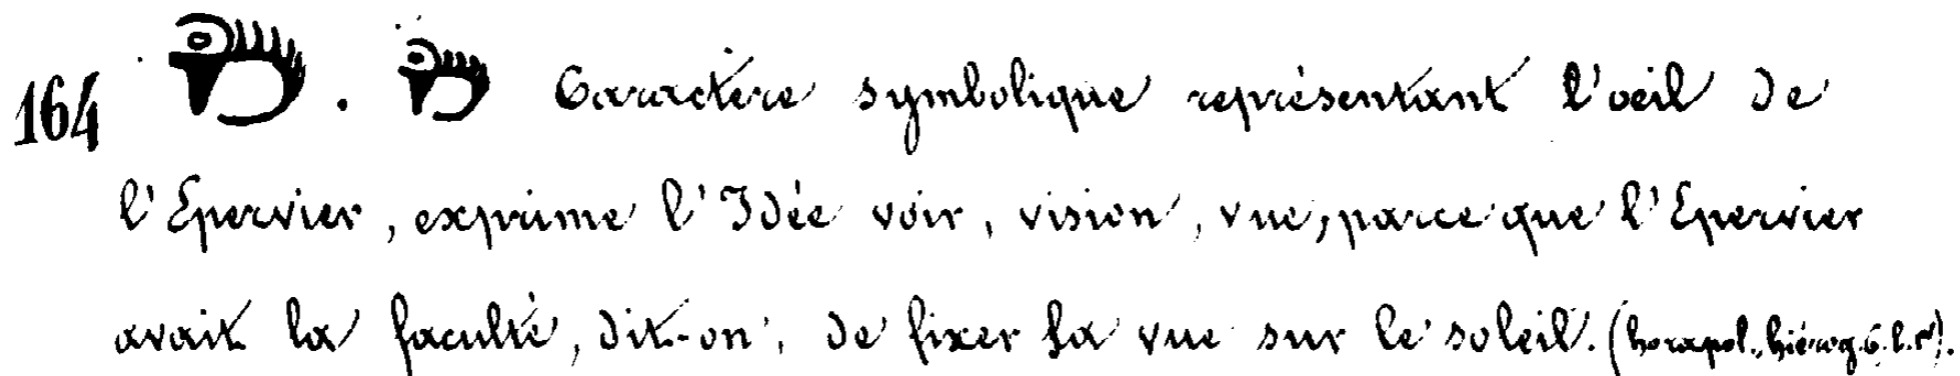 164 . Caractère symbolique représentant l'oeil de
l'Epervier, exprime l'Idée voir, vision, vue, parce que l'Epervier
avait la faculté, dit-on, de fixer sa vue sur le soleil. (horapol., hiérog. 6. l. 1er).